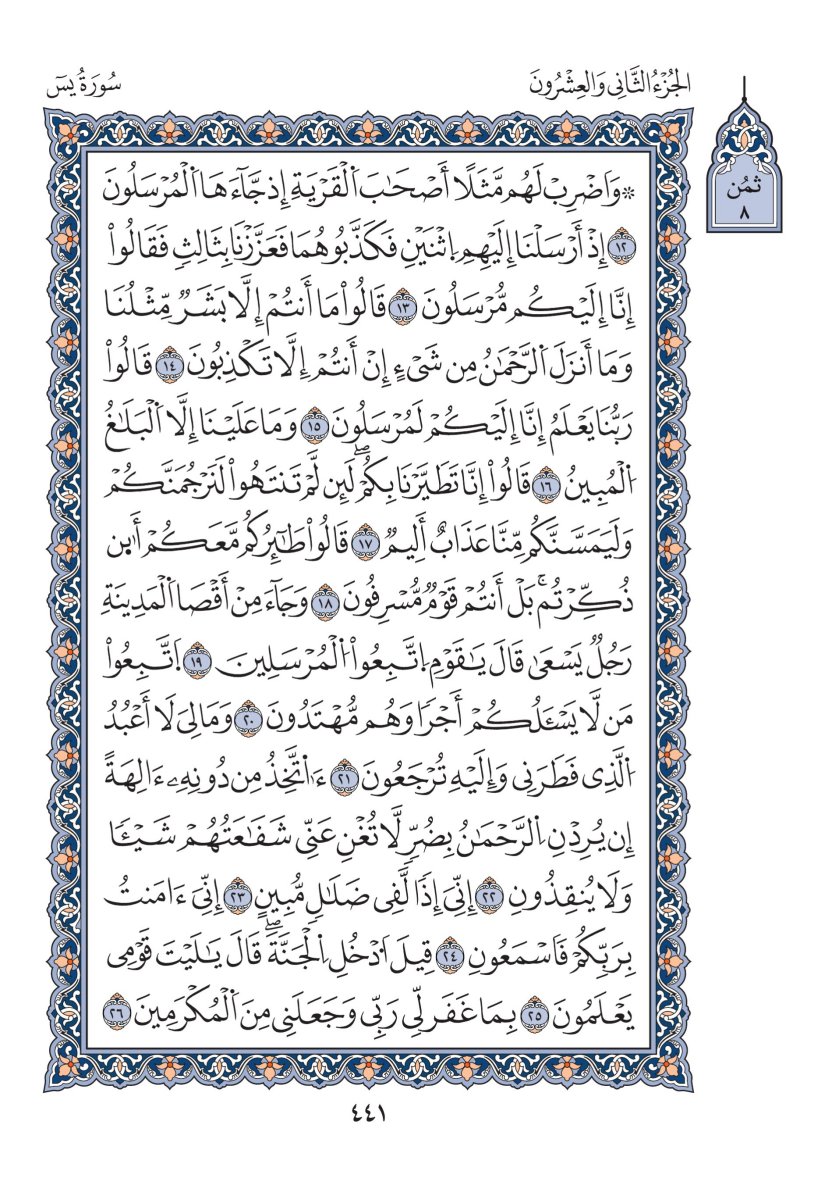 الجُزْءُ الثَّانِي وَالعِشْرُونَ
سُورَةُ يسٓ
ثُمُن
٨
۞وَاَضْرِبْ لَهُم مَّثَلًا أَصْحَٰبَ اَ۬لْقَرْيَةِ إِذْ جَّآءَهَا اَ۬لْمُرْسَلُونَ
١٢ إِذْ أَرْسَلْنَا إِلَيْهِمِ اِ۪ثْنَيْنِ فَكَذَّبُوهُمَا فَعَزَّزْنَا بِثَالِثٍ فَقَالُواْ
إِنَّا إِلَيْكُم مُّرْسَلُونَ ١٣ قَالُواْ مَا أَنتُمْ إِلَّا بَشَرٌ مِّثْلُنَا
وَمَا أَنزَلَ اَ۬لرَّحْمَٰنُ مِن شَيْءٍ إِنْ أَنتُمْ إِلَّا تَكْذِبُونَ ١٤ قَالُواْ
رَبُّنَا يَعْلَمُ إِنَّا إِلَيْكُمْ لَمُرْسَلُونَ ١٥ وَمَا عَلَيْنَا إِلَّا اَ۬لْبَلَٰغُ
اُ۬لْمُبِينُ ١٦ قَالُواْ إِنَّا تَطَيَّرْنَا بِكُمْۖ لَئِن لَّمْ تَنتَهُواْ لَنَرْجُمَنَّكُمْ
وَلَيَمَسَّنَّكُم مِّنَّا عَذَابٌ أَلِيمٌ ١٧ قَالُواْ طَٰٓئِرُكُم مَّعَكُمْ أَا۬ين
ذُكِّرْتُمۚ بَلْ أَنتُمْ قَوْمٌ مُّسْرِفُونَ ١٨ وَجَآءَ مِنْ أَقْصَا اَ۬لْمَدِينَةِ
رَجُلٌ يَسْعَىٰ قَالَ يَٰقَوْمِ اِ۪تَّبِعُواْ اُ۬لْمُرْسَلِينَ ١٩ اَ۪تَّبِعُواْ
مَن لَّا يَسْـَٔلُكُمْ أَجْرًا وَهُم مُّهْتَدُونَ ٢٠ وَمَالِيَ لَا أَعْبُدُ
اُ۬لَّذِي فَطَرَنِي وَإِلَيْهِ تُرْجَعُونَ ٢١ ءَا۬تَّخِذُ مِن دُونِهِۦ ءَالِهَةً
إِن يُرِدْنِ اِ۬لرَّحْمَٰنُ بِضُرٍّ لَّا تُغْنِ عَنِّي شَفَٰعَتُهُمْ شَيْـًٔا
وَلَا يُنقِذُونِ ٢٢ إِنِّيَ إِذًا لَّفِي ضَلَٰلٍ مُّبِينٍ ٢٣ إِنِّيَ ءَامَنتُ
بِرَبِّكُمْ فَاسْمَعُونِ ٢٤ قِيلَ اَ۟دْخُلِ اِ۬لْجَنَّةَۖ قَالَ يَٰلَيْتَ قَوْمِي
يَعْلَمُونَ ٢٥ بِمَا غَفَر لِّي رَبِّي وَجَعَلَنِي مِنَ اَ۬لْمُكْرَمِينَ ٢٦
٤٤١